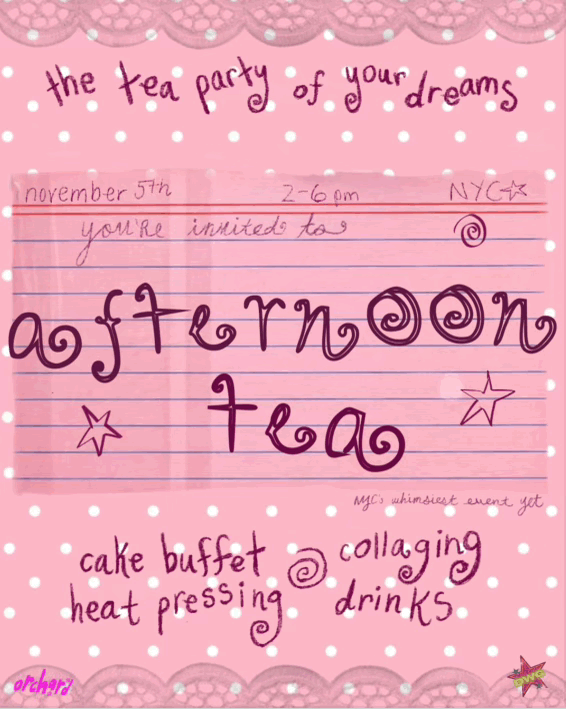 the tea party of your dreams
november 5th 2-6 pm NYC
you're invited to
afternoon
tea
NYC's whimsiest event yet
cake buffet collaging
heat pressing drinks
orchard